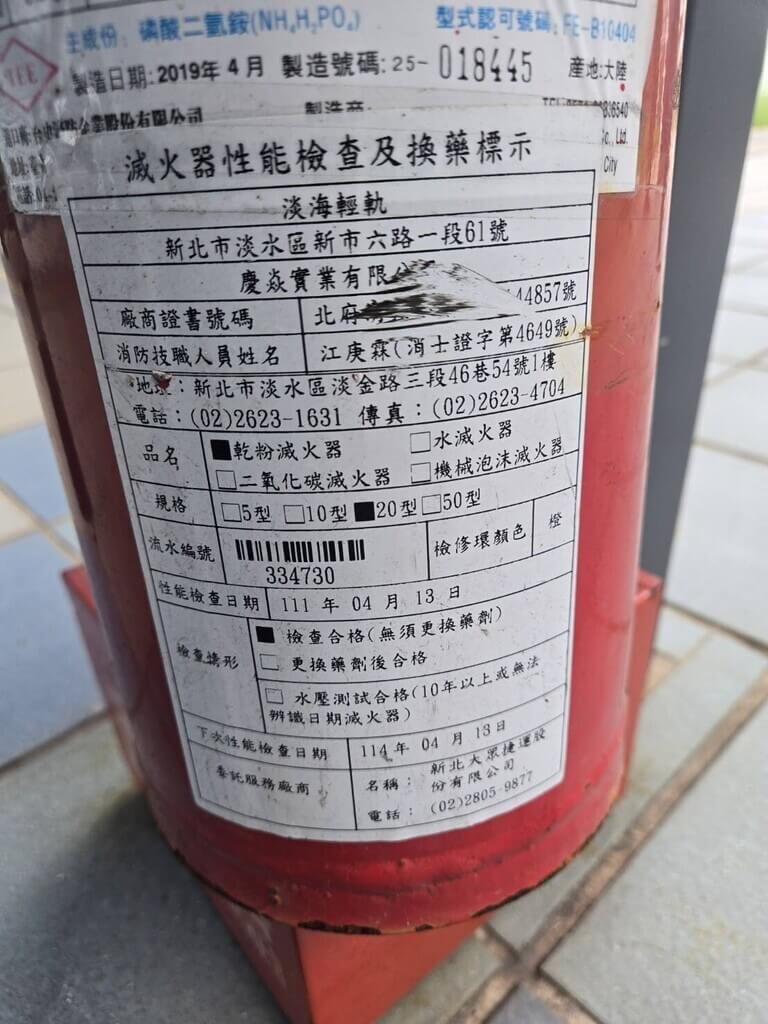 主成份: 磷酸二氫銨(NH₄H₂PO₄) 型式認可號碼: FE-B10404
製造日期:2019年4月 製造號碼:25-018445 產地:大陸
製造商:
滅火器性能檢查及換藥標示
淡海輕軌
新北市淡水區新市六路一段61號
慶焱實業有限
廠商證書號碼 北府 44857號
消防技職人員姓名 江庚霖(消士證字第4649號)
地址:新北市淡水區淡金路三段46巷54號1樓
電話:(02)2623-1631 傳真:(02)2623-4704
品名 ■乾粉滅火器 □水滅火器
□二氧化碳滅火器 □機械泡沫滅火器
規格 □5型 □10型 ■20型 □50型
流水編號 334730 檢修環顏色 橙
性能檢查日期 111 年 04 月 13 日
檢查情形 ■ 檢查合格(無須更換藥劑)
□ 更換藥劑後合格
□ 水壓測試合格(10年以上或無法
辨識日期滅火器)
下次性能檢查日期 114年 04 月 13日
委託服務廠商 名稱: 新北大眾捷運股
份有限公司
電話: (02)2805-9877